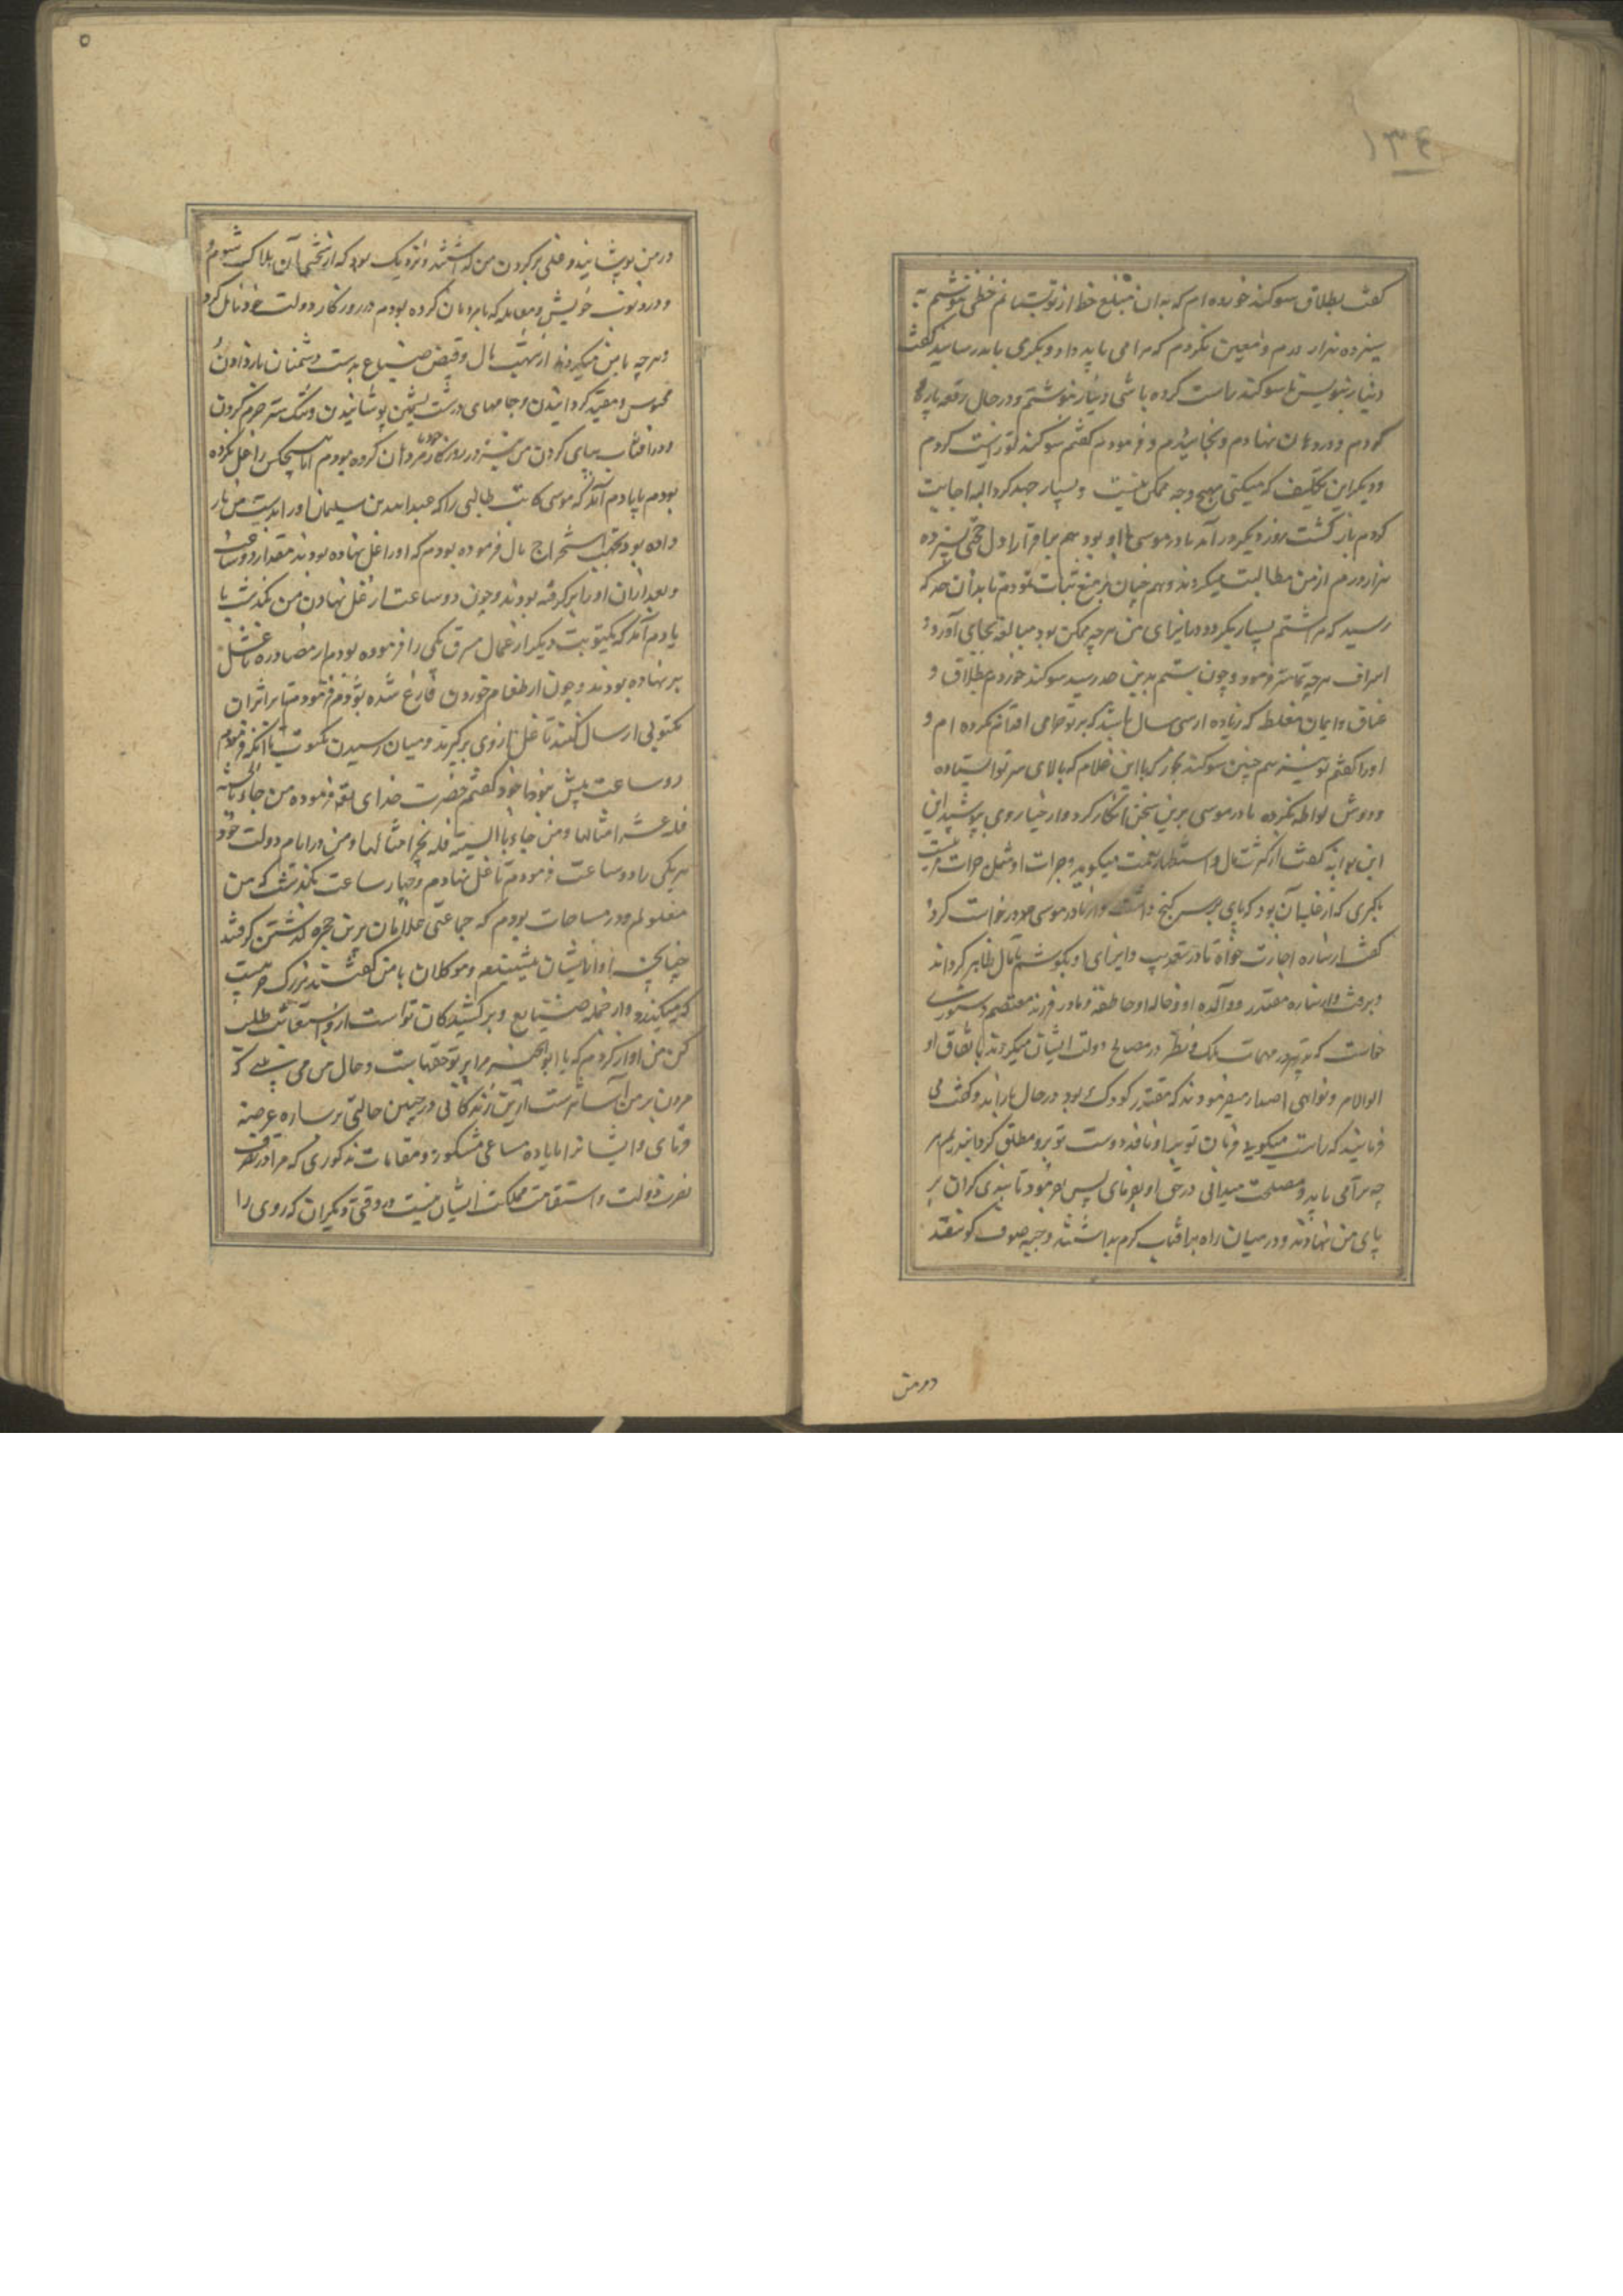 ۱۳۴
گفت بطلاق سوگند خورده ام که بدان مبلغ خط از تو بستانم خطی نوشتم به
سیزده هزار درم و معین نکردم که مرا می باید داد و بکری باید رسانید گفت
دینار بنویس تا سوگند راست کرده باشی دینار نوشتم و در حال رقعه پاره
کردم و در دهان نهادم و بخاییدم و فرمودم گفتم سوگند تو راست کردم
و دیگر این تکلیف که میکنی بهیچ وجه ممکن نیست و بسیار جهد کرد البته اجابت
کردم بازگشت روز دیگر در آمد مادر موسی با او بود هم بما قرار اول
هزار درم از من مطالبت میکردند و هم چنان بر منع ثبات نمودم تا بدان حد که
رسید که مرا شتم بسیار بکرد و در ایذای من هرچه ممکن بود مبالغه بجای آورد و
اسراف هرچه تمامتر فرمود و چون شتم بدین حد رسید سوگند خوردم بطلاق و
عتاق و ایمان مغلظه که زیاده از سی سال باشد که بر تو حرامی اقدام نکرده ام و
او را گفتم تو نیز هم چنین سوگند بخور که با این غلام که بالای سر تو ایستاده
و دوش لواطه نکرده مادر موسی برین سخن انکار کرد و از حیا روی بپوشید این
گفت از کثرت مال و استظهار نعمت میگوید و جرات او
که پای بر سر گنج داشت و از مادر موسی در خواست کرد
گفت از ساره اجازت خواه تا در تعذیب و ایذای او بکوشم تا مال ظاهر گرداند
و برفت و از ساره مقتدر و والده او و خاله او حاطفه و مادر فرزند معتصم دستوری
خواست که تدبیر در مهمات ملک و نظر در مصالح دولت ایشان میکردند باتفاق او
اوامر و نواهی اصدار میفرمودند که مقتدر کودک بود در حال باز آمد و گفت می
فرمایند که راست میگوید فرمان تو بر او نافذ و دست تو برو مطلق گردانیدیم هر
چه ترا می باید و مصلحت میدانی در حق او بفرمای پس بفرمود تا بندی گران بر
پای من نهادند و در میان راه بر آفتاب گرم بداشتند و جبه صوف گوسفند
در من
۵
در من پوشانید و غلی بر گردن من گذاشتند و نزدیک بود که از سختی آن هلاک شوم و
در ذنوب خویش و معامله که با مردمان کرده بودم در روزگار دولت خود تامل کردم
و هرچه با من میکردند از نهب مال و قبض ضیاع بدست دشمنان باز دادن و
محبوس و مقید گردانیدن و جامهای درشت پشمین پوشانیدن و
و در آفتاب بپای کردن من نیز در روزگار خود با مردمان کرده بودم اما هیچکس را غل نکرده
بودم با یادم آمد که موسی کاتب طالبی را که عبدالله بن سلیمان او را بدست من باز
داده بود بجهت استخراج مال فرموده بودم که او را غل نهاده بودند مقدار دو ساعت
و بعد از آن او را برگرفته بودند و چون دو ساعت از غل نهادن من بگذشت با
یادم آمد که بکتوبت دیگر از عمال مشرق یکی را فرموده بودم از مصادره تا غل
بر نهاده بودند و چون از طعام خوردن فارغ شده بودم فرمودم تا بر اثر آن
مکتوبی ارسال کنند تا غل از وی برگیرند و میان رسیدن مکتوب تا آنکه فرمودم
دو ساعت بیش نبود با خود گفتم حضرت خدای تعالی فرموده من جاء بالحسنة
فله عشر امثالها و من جاء بالسیئة فله امثالها و من در ایام دولت خود
هر یکی را دو ساعت فرمودم تا غل نهادم و چهار ساعت بگذشت که من
مغلولم و در مناجات بودم که جماعتی غلامان برین حجره گذشتن گرفتند
چنانچه آواز ایشان میشنیدم و موکلان با من گفتند نزرک حرمیست
که میگذرد و از جمله صنایع و برکشیدگان تو است از و استعانت طلب
کن من آواز کردم که یا ابوالخیر مرا بر تو حقهاست و حال من می بینی که
مردن بر من آسانترست ازین زندگانی در چنین حالتی بر ساره عرضه
فرمای و ایشانرا با یاد ده مساعی مشکور و مقامات مذکوری که مرا در
نصرت دولت و استقامت مملکت ایشان نیست و وقتی دیگران که روی را